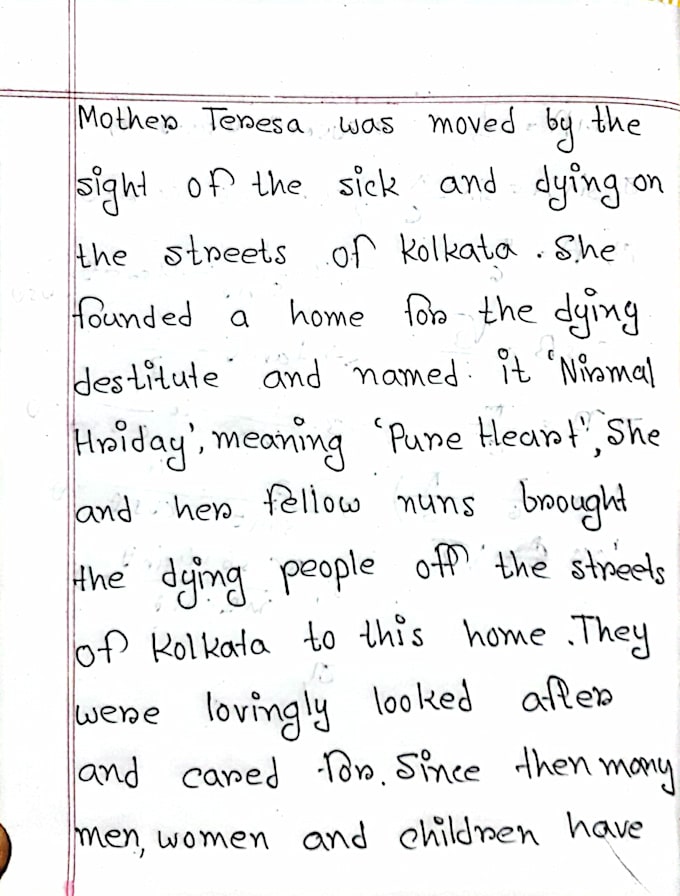 Mother Teresa was moved by the
sight of the sick and dying on
the streets of Kolkata. She
founded a home for the dying
destitute and named it 'Nirmal
Hriday', meaning 'Pure Heart', She
and her fellow nuns brought
the dying people off the streets
of Kolkata to this home. They
were lovingly looked after
and cared for. Since then many
men, women and children have